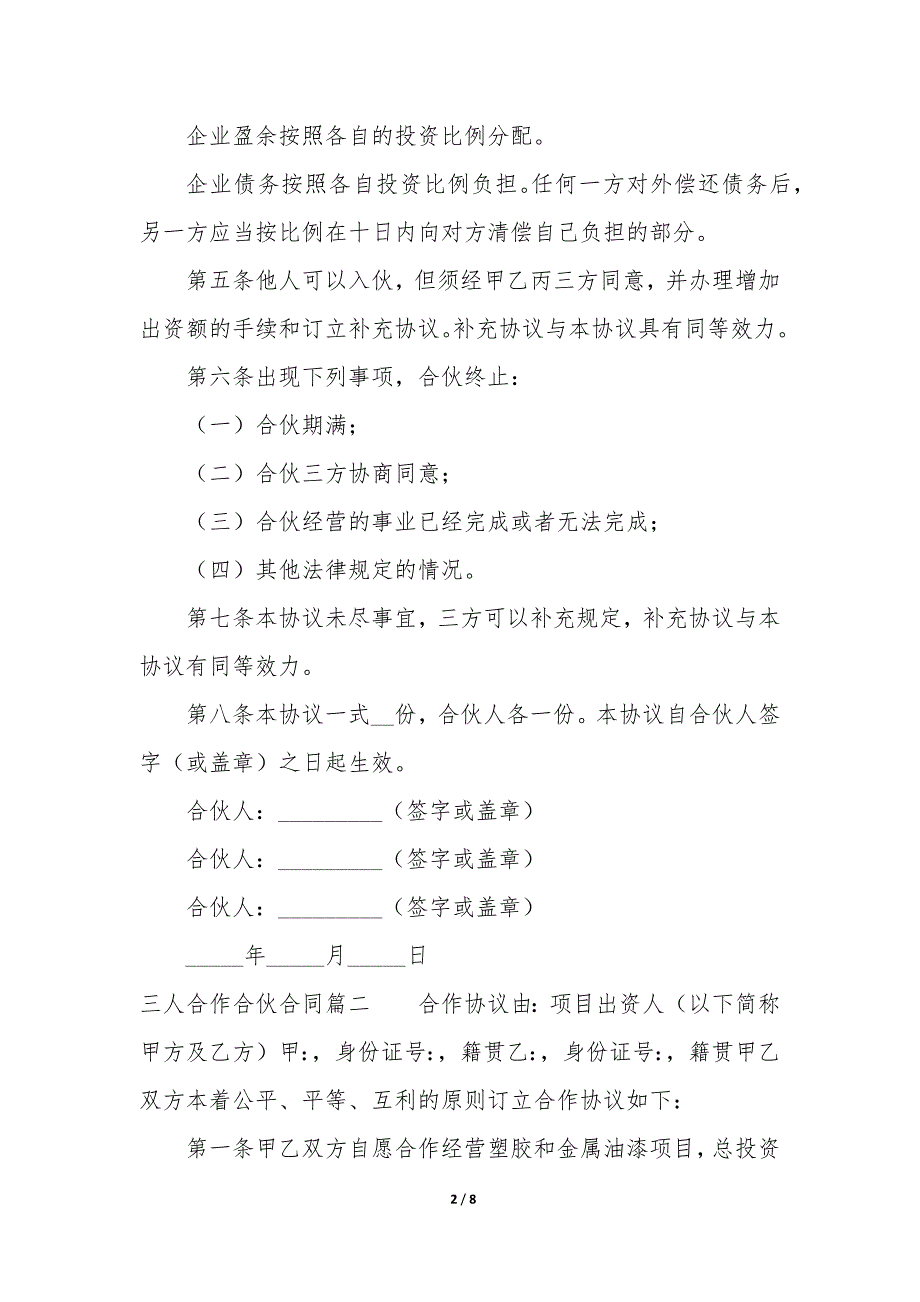 企业盈余按照各自的投资比例分配。
企业债务按照各自投资比例负担。任何一方对外偿还债务后，
另一方应当按比例在十日内向对方清偿自己负担的部分。
第五条他人可以入伙，但须经甲乙丙三方同意，并办理增加
出资额的手续和订立补充协议。补充协议与本协议具有同等效力。
第六条出现下列事项，合伙终止：
（一）合伙期满；
（二）合伙三方协商同意；
（三）合伙经营的事业已经完成或者无法完成；
（四）其他法律规定的情况。
第七条本协议未尽事宜，三方可以补充规定，补充协议与本
协议有同等效力。
第八条本协议一式__份，合伙人各一份。本协议自合伙人签
字（或盖章）之日起生效。
合伙人：_________（签字或盖章）
合伙人：_________（签字或盖章）
合伙人：_________（签字或盖章）
_____年_____月_____日
三人合作合伙合同篇二　　合作协议由：项目出资人（以下简称
甲方及乙方）甲：，身份证号：，籍贯乙：，身份证号：，籍贯甲乙
双方本着公平、平等、互利的原则订立合作协议如下：
第一条甲乙双方自愿合作经营塑胶和金属油漆项目，总投资
2 / 8